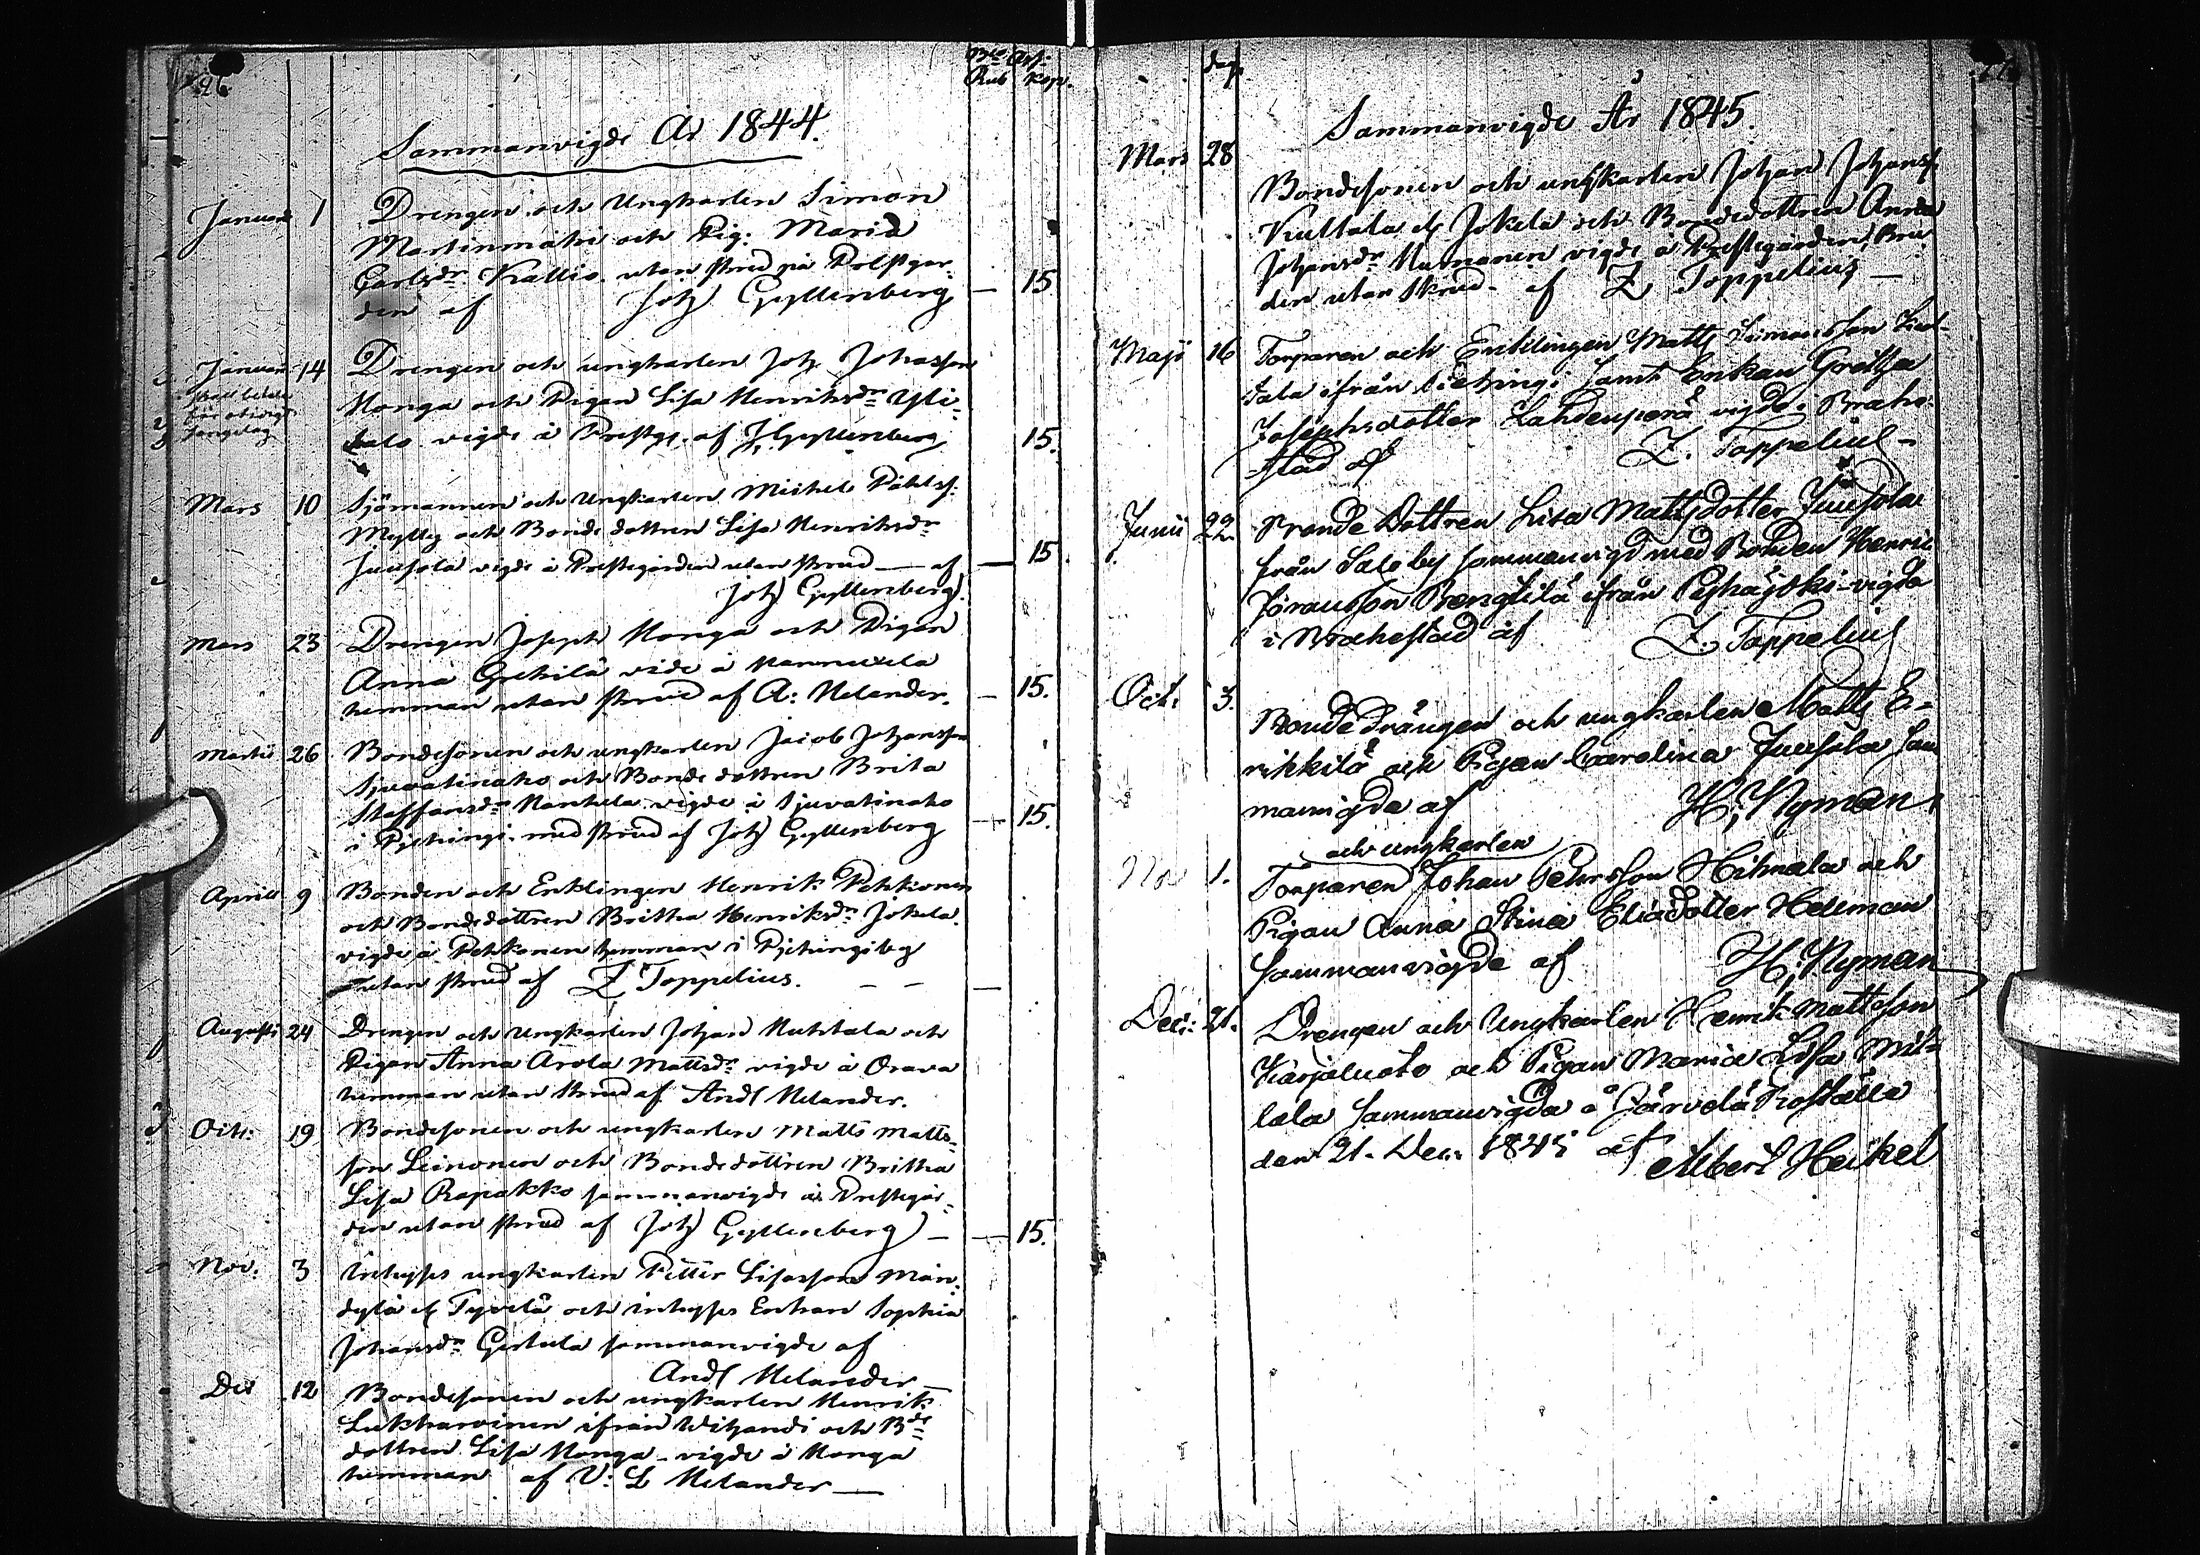 26.
Rub kop.
Sammanvigde År 1844.
Januari 1 Drengen och Ungkarlen Simon
Martinmäki och Pig: Maria
Carlsdr Kallio utan skrud på Prestgår-
den af Joh Gyllenberg — 15
Januari 14 Drengen och ungkarlen Joh Johansson
Honga och Pigan Lisa Henriksdr Yli-
talo vigde å Prestg. af J Gyllenberg 15.
Mars 10 Sjömannen och Ungkarlen Michel Påhlss:
Mylly och Bonde dottren Lisa Henriksdr
Juusola vigde å Prestegården utan skrud — af — 15.
Joh Gyllenberg.
Mars 23 Drengen Joseph Honga och Pigan
Anna Grekilä vide å
hemman utan skrud af A: Helander. — 15.
Martii 26 Bondesonen och ungkarlen Jacob Johansson
och Bonde dottren Brita
Staffansdr Hankela vigde å
i Pjehingi med skrud af Joh Gyllenberg — 15.
Aprill 9 Bonden och Enklingen Henrik Pehkonen
och Bondedottren Britha Henriksdr Jokela
vigde å Pehkonen hemman i Pjehingi by
utan skrud af Z Toppelius. — — —
Augusti 24 Drengen och Ungkarlen Johan Huhtala och
Pigan Anna Arola Mattsdr vigde å Orava
hemman utan skrud af And Helander.
Octr: 19 Bondesonen och ungkarlen Matts Matts-
son Leinonen och Bondedottren Britha
Lisa Rapakko sammanvigde å Prestegår-
den utan skrud af Joh Gyllenberg — — 15.
Nov: 3 Inhyses ungkarlen Petter Lisasson Män-
tylä el Tyvelä och inhyses Enkan Sophia
Johansdr Gertula sammanvigde af
And Helander —
Dec 12 Bondesonen och ungkarlen Henrik
Lukkarinen ifrån Wihandi och Bde
dottren Lisa Honga vigde å Honga
hemman af V: L Helander —
dag
Sammanvigde År 1845.
Mars 28 Bondesonen och ungkarlen Johan Johanss.
Kultala el Jokela och Bondedottren Anna
Johansdr vigde å Prestegården, Bru
den utan Skrud af Z Toppelius —
Maji 16 Torparen och Enklingen Matts Simonsson
ifrån samt Enkan Gretha
Josephsdotter Lahdenperä vigde i Brahe-
stad af Z. Toppelius —
Junii 22 Bonde Dottren Lisa Mattsdotter Juusola
från Salo by sammanvigd med Bonden Henric
Jöransson Pengtilä ifrån Pyhäjoki — vigda
i Brahestad af Z. Toppelius
Oct: 3. Bonde Drängen och ungkarlen Matts E-
rikkilä och Pigan Carolina Juusola sam
manvigda af H; Nyman.
och ungkarlen
Nov 1. Torparen Johan Pehrsson Hihnala och
Pigan Anna Stina Eliædotter Hellman
sammanvigde af H; Nyman
Dec: 21. Drengen och Ungkarlen Henrik Mattsson
Karjaluoto och Pigan Maria Lisa Mul-
lala sammanvigda å Järvelä Boställe
den 21. Dec: 1845 af Albert Heikel